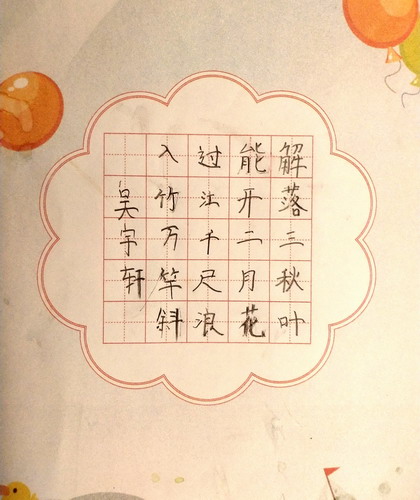 解落三秋叶
能开二月花
过江千尺浪
入竹万竿斜
吴宇轩